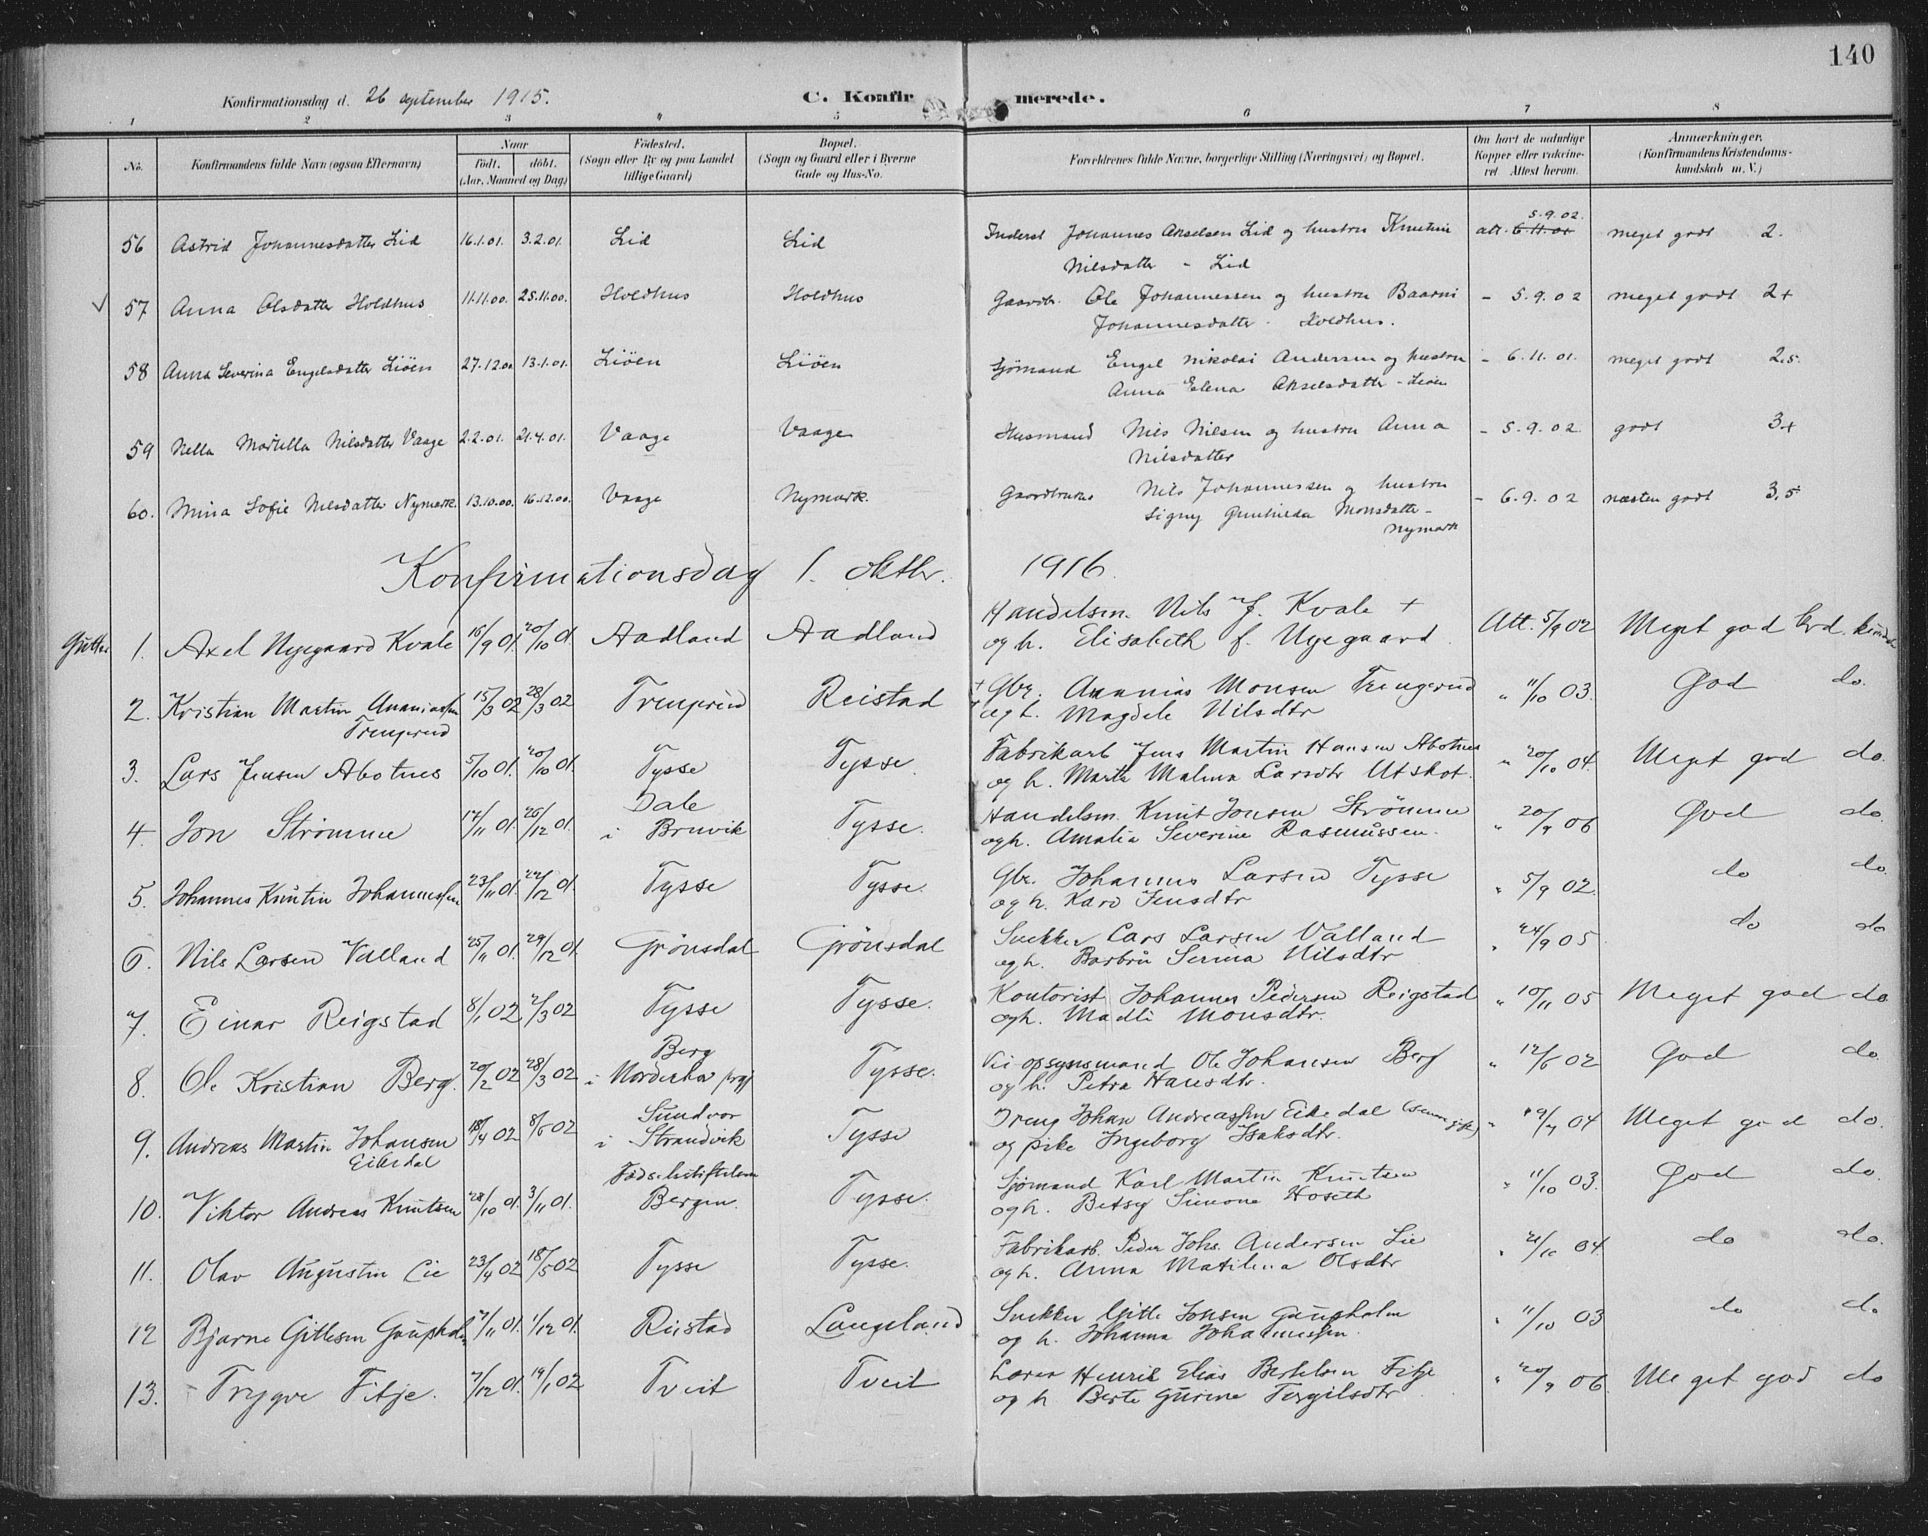 140
Konfirmationsdag d. 26 september 1915. C. Konfirmerede.
1 2 3 4 5 6 7 8
No. Konfirmandens fulde Navn (ogsaa Efternavn) Naar født. døbt. (Aar, Maaned og Dag) Fødested. (Sogn eller By og paa Landet tillige Gaard) Bopæl. (Sogn og Gaard eller i Byerne Gade og Hus-No. Forældrenes fulde Navne, borgerlige Stilling (Næringsvei) og Bopæl. Om havt de naturlige Kopper eller vaccineret Attest herom. Anmærkninger. (Konfirmandens Kristendomskundskab m. V.)
56 Astrid Johannesdatter Lid 16.1.01. 3.2.01. Lid Lid Inderst Johannes Akselsen Lid og hustru Knutine att. 6.11.01 5.9.02. meget godt 2.
Nilsdatter - Lid
57 Anna Olsdatter Holdhus 11.11.00. 25.11.00. Holdhus Holdhus Gaardbr. Ole Johannessen og hustru Baarni - 5.9.02 meget godt 2+
Johannesdatter - Holdhus.
58 Anna Severina Engelsdatter Liøen 27.12.00 13.1.01. Liøen Liøen Sjømand Engel Nikolai Andersen og hustru - 6.11.01. meget godt 2,5.
Anna Elena Akselsdatter - Liøen
59 Nella Martella Nilsdatter Vaage 2.2.01. 21.4.01. Vaage Vaage Husmand Nils Nilsen og hustru Anna - 5.9.02 godt 3+
Nilsdatter
60. Mina Sofie Nilsdatter Nymark. 13.10.00. 16.12.00. Vaage Nymark. Gaardbruker Nils Johannessen og hustru - 6.9.02 næsten godt 3,5
Signy Gunhilda Monsdatter -
Nymark
Konfirmationsdag 1. oktbr. 1916.
Gutter 1. Axel Nyegaard Kvale 15/9 01. 20/10 01. Aadland Aadland Handelsm. Nils J. Kvale + Att. 5/9 02 Meget god krd. kundsk
og h. Elisabeth f. Nyegaard.
2. Kristian Martin Ananiassen 15/3 02 28/3 02 Trengerud Reistad Gbr. Ananias Monsen Trengerud " 11/10 03. God do.
Trengerud og h. Magdele Nilsdtr
3. Lars Jensen Abotnes 5/10 01. 20/10 01. Tysse Tysse. Fabrikarb Jens Martin Hansen Abotnes " 20/10 04. Meget god do.
og h. Marta Malina Larsdtr Utskot.
4 Jon Strømme 17/11 01. 26/12 01. Dale i Bruvik Tysse. Handelsm. Knut Jonsen Strömme " 20/9 06 God do.
og h. Amalia Severine Rasmussen.
5. Johannes Knutin Johannessen 23/11 01. 22/12 01. Tysse Tysse. Gbr. Johannes Larsen Tysse " 5/9 02. do do.
og h. Kari Jensdtr
6. Nils Larsen Valland 25/11 01. 29/12 01. Grönsdal Grönsdal Snekker Lars Larsen Valland " 24/9 05. do do
og h. Barbru Serina Nilsdtr
7. Einar Reigstad 8/1 02. 2/3 02 Tysse Tysse. Kontorist Johannes Pedersen Reigstad " 10/11 05 Meget god do
og h. Madli Monsdtr.
8. Ole Kristian Berg. 20/2 02 28/3 02 Berg i Norderhov prgj Tysse. Vei opsynsmand Ole Johansen Berg " 12/6 02 God do.
og h. Petra Hansdtr.
9. Andreas Martin Johansen 18/4 02 8/6 02 Sundvor i Strandvik Tysse Dreng Johan Andreassen Eikedal (senere gift) " 19/9 04 Meget god do.
Eikedal og pike Ingeborg Isaksdtr.
10. Viktor Andreas Knutsen 28/10 01. 3/11 01. Fødselsstiftelsen Bergen. Tysse. Sjømand Karl Martin Knutsen " 11/10 03. God do
og h. Betsy Simone Hoseth
11. Olav Augustin Lie 23/4 02 18/5 02 Tysse Tysse. Fabrikarb. Peder Johs. Andersen Lie " 21/10 04. do do.
og h. Anna Matilena Olsdtr
12 Bjarne Gittesen Gaupholm 7/11 01. 1/12 01. Reistad Langeland Snekker Gitle Jonsen Gaupholm " 11/10 03 do do
og h. Johanna Johannessen.
13. Trygve Fitje. 7/12 01. 19/1 02 Tveit Tveit Lærer Henrik Elias Bertelsen Fitje " 20/9 06. Meget god do
og h Berte Gurine Torgilsdtr